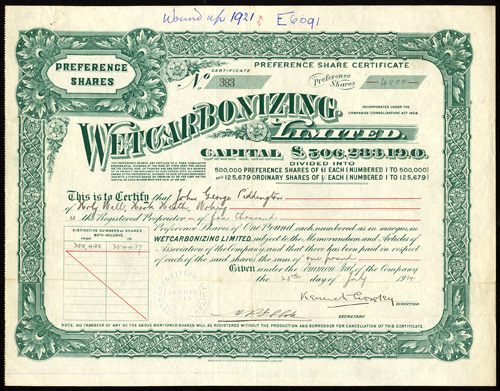 Wound up 1921 E6091
PREFERENCE
SHARES
PREFERENCE SHARE CERTIFICATE
CERTIFICATE
No 383
Preference
Shares
4000
INCORPORATED UNDER THE
COMPANIES (CONSOLIDATION) ACT 1908.
WETCARBONIZING,
LIMITED.
CAPITAL £506,283.19.0.
DIVIDED INTO
500,000 PREFERENCE SHARES OF £1 EACH (NUMBERED 1 TO 500,000)
AND 125,679 ORDINARY SHARES OF 1/- EACH (NUMBERED 1 TO 125,679)
This is to Certify that John George Piddington
of Holy Well, Hook Heath, Woking
is the Registered Proprietor of four thousand
Preference Shares of One Pound each numbered as in margin, in
WETCARBONIZING LIMITED, subject to the Memorandum and Articles of
Association of the Company and that there has been paid in respect
of each of the said shares the sum of one pound
Given under the Common Seal of the Company
the 28th day of July 1914
DISTINCTIVE NUMBERS OF SHARES
BOTH INCLUSIVE.
FROM TO
DIRECTOR
SECRETARY
NOTE: NO TRANSFER OF ANY OF THE ABOVE MENTIONED SHARES WILL BE REGISTERED WITHOUT THE PRODUCTION AND SURRENDER FOR CANCELLATION OF THIS CERTIFICATE